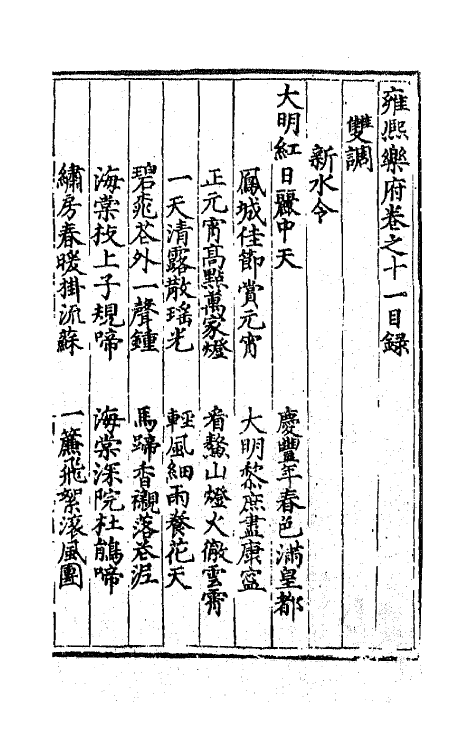 雍熈樂府卷之十一目録
雙調
新水令
大明紅日麗中天　慶豐年春色滿皇都
鳳城佳節賞元宵　大明黎庶盡康寧
正元宵高點萬家燈　看鰲山燈火徹雲霄
一天清露散瑤光　輕風細雨養花天
碧桃花外一聲鐘　馬蹄香襯落花泥
海棠枝上子規啼　海棠深院杜鵑啼
繡房春暖掛流蘇　一簾飛絮滚風團